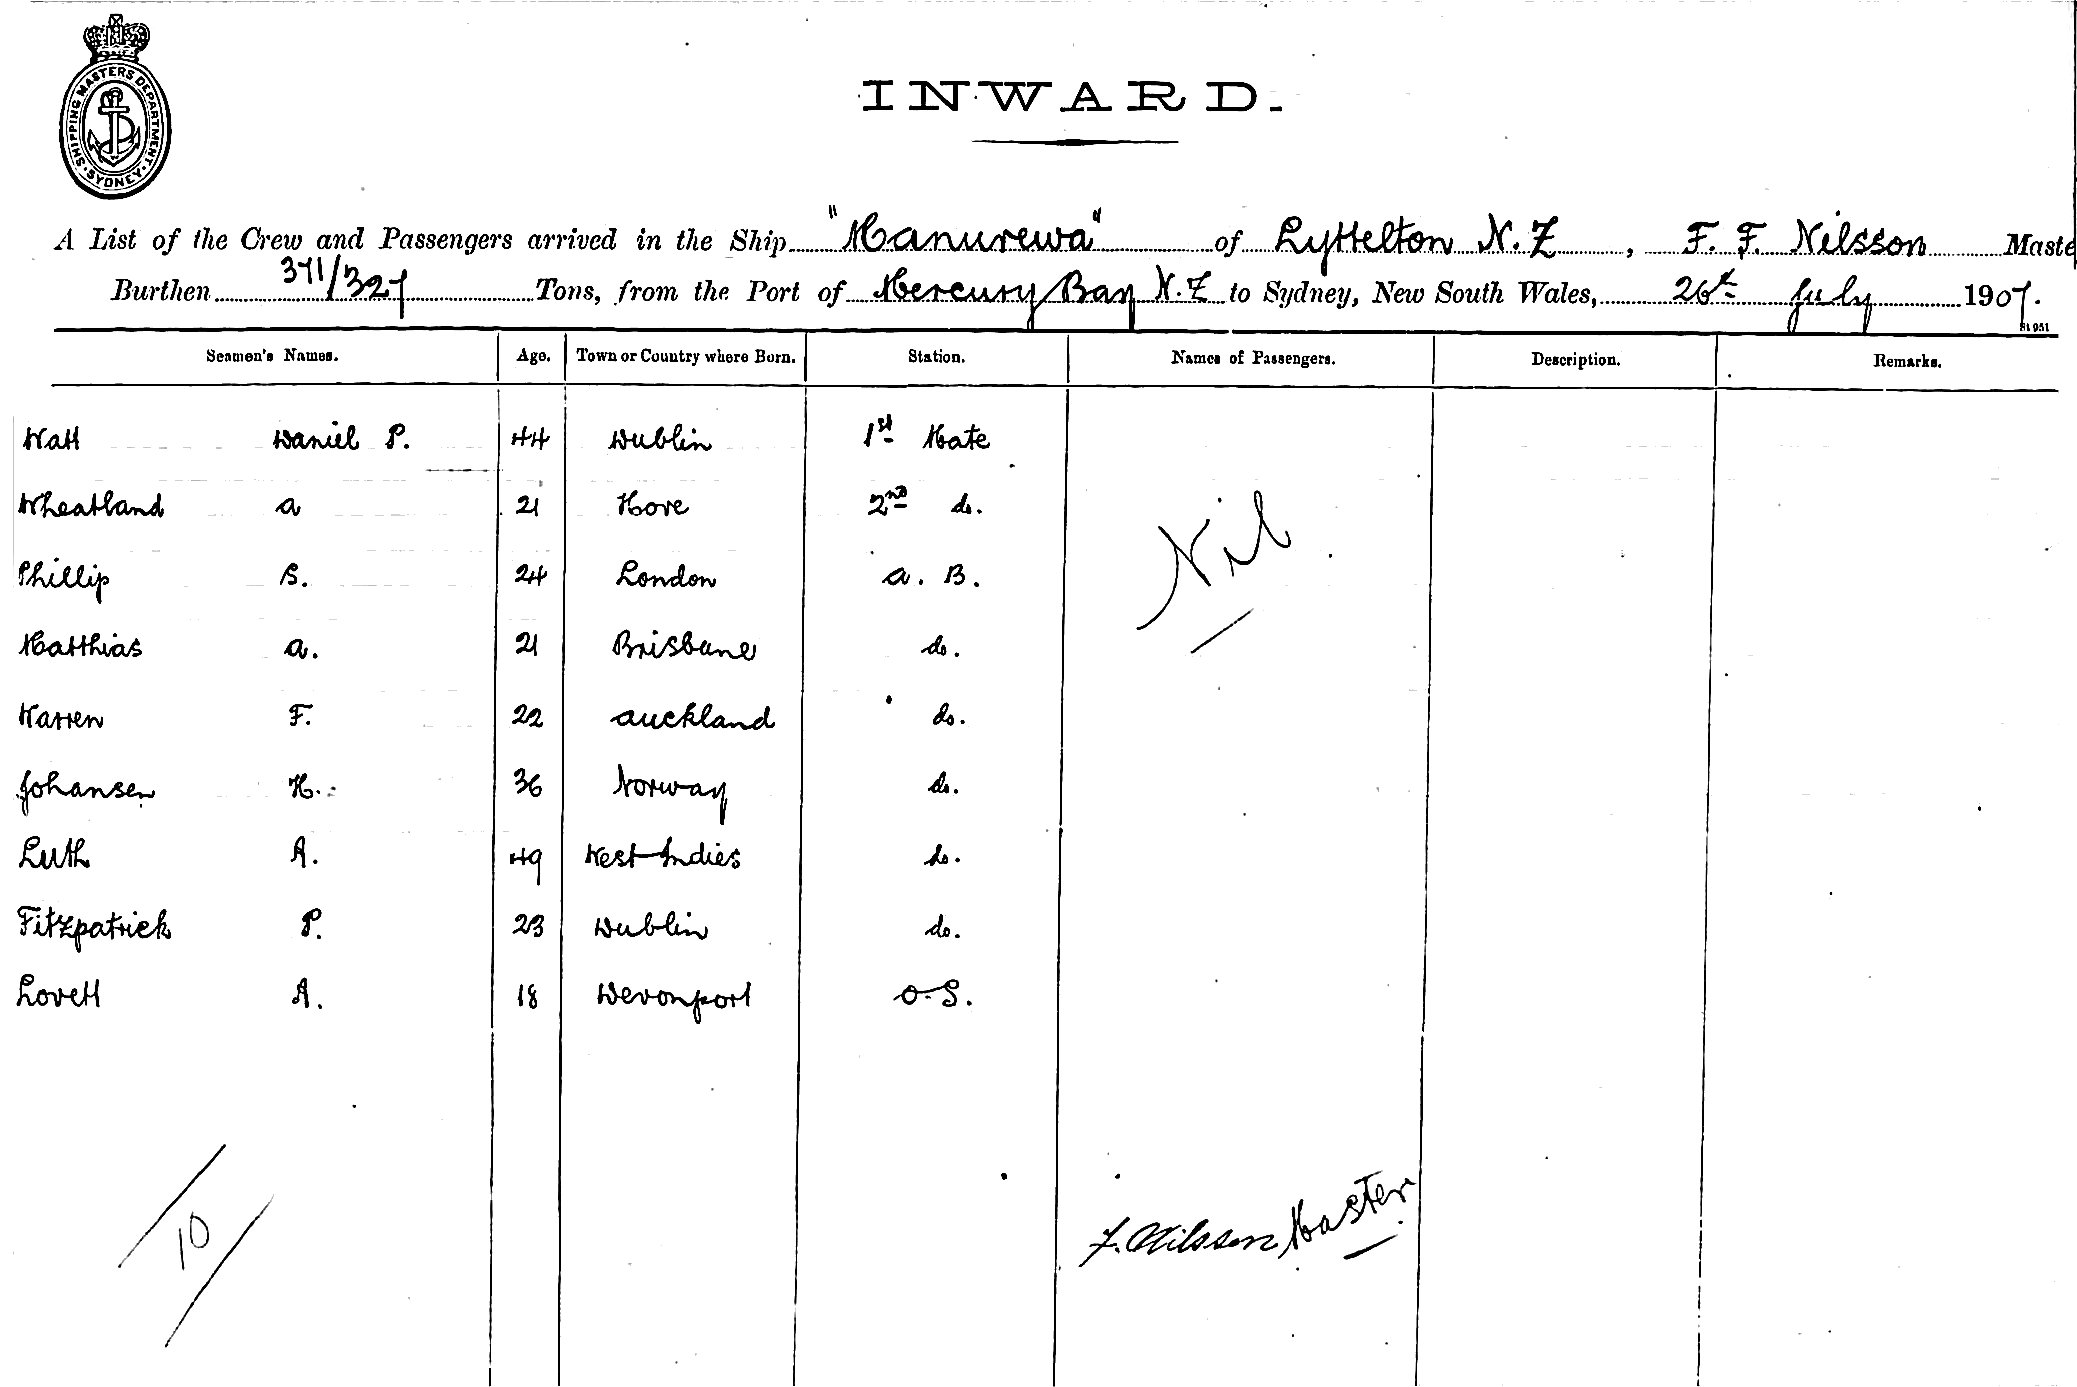 SHIPPING MASTERS DEPARTMENT
SYDNEY
INWARD.
A List of the Crew and Passengers arrived in the Ship "Manurewa" of Lyttelton N.Z, F. F. Nilsson Maste
Burthen 371/327 Tons, from the Port of Mercury Bay N.Z to Sydney, New South Wales, 26th July 1907.
Seamen's Names. Age. Town or Country where Born. Station. Names of Passengers. Description. Remarks.
Watt Daniel P. 44 Dublin 1st Mate
Wheatland A 21 Hove 2nd do.
Phillip B. 24 London A. B.
Nil
Matthias A. 21 Brisbane do.
Warren F. 22 Auckland do.
Johansen H. 36 Norway do.
Luth A. 49 West Indies do.
Fitzpatrick P. 23 Dublin do.
Lovett A. 18 Devonport O.S.
10
F. Nilsson Master